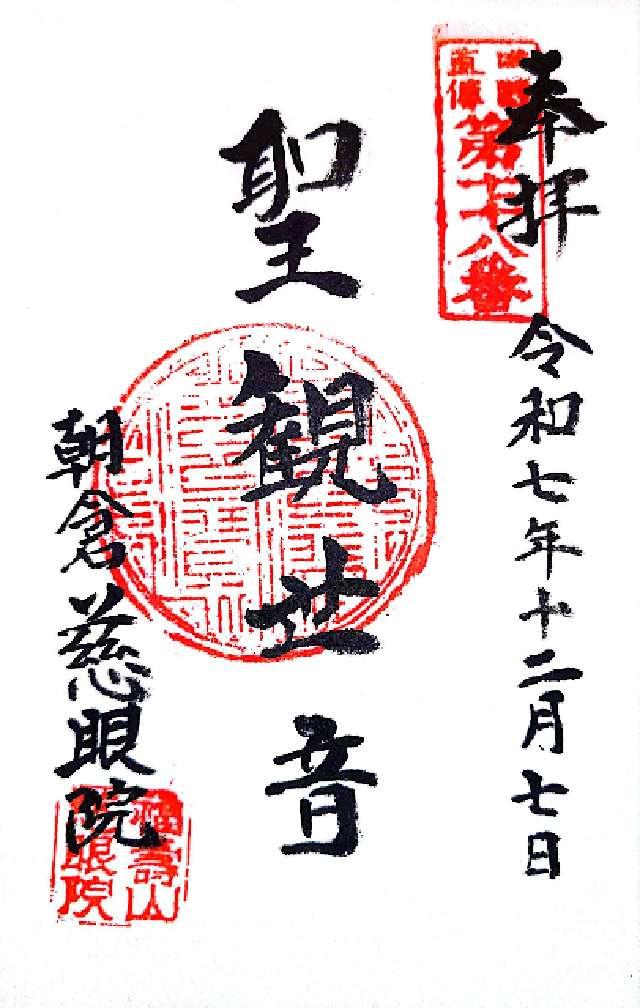 奉拝
令和七年十二月七日
第十八番
聖観世音
朝倉慈眼院
福壽山
慈眼院